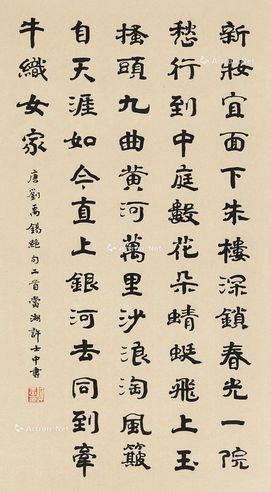 新妝宜面下朱樓深鎖春光一院
愁行到中庭數花朵蜻蜓飛上玉
搔頭九曲黃河萬里沙浪淘風簸
自天涯如今直上銀河去同到牽
牛織女家
唐劉禹錫絕句二首當湖許士中書